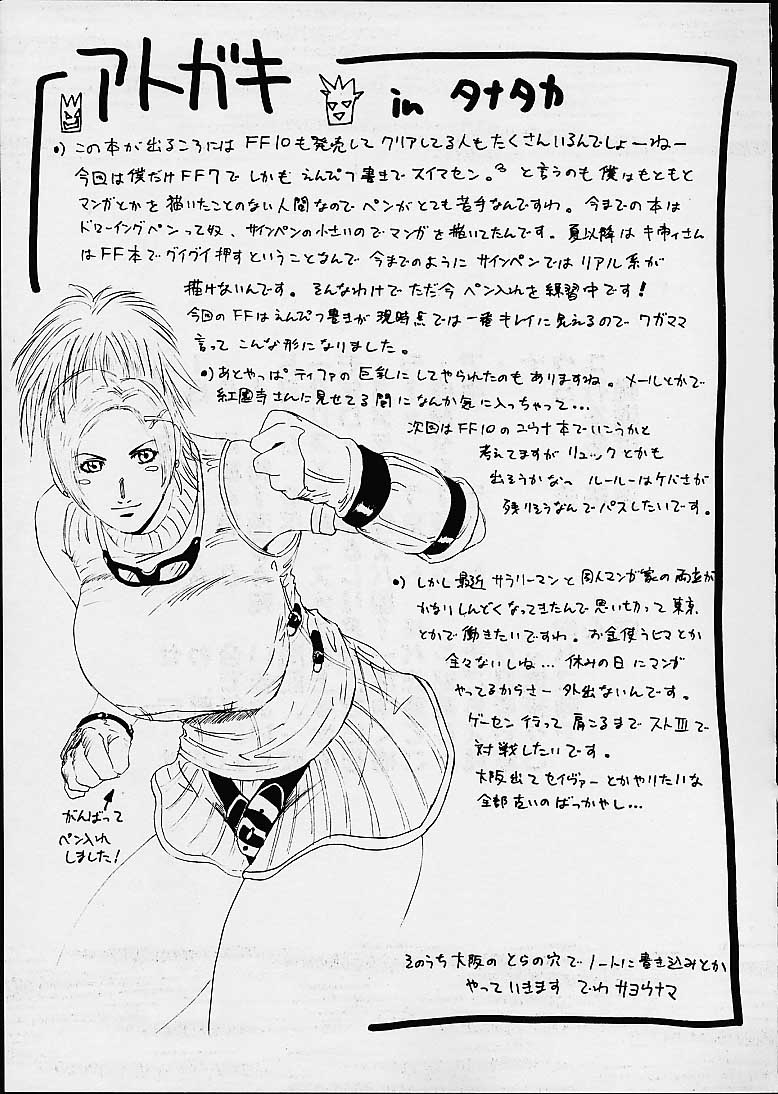 アトガキ
in タナタカ
•) この本が出るころには FF10も発売して クリアしてる人もたくさんいるんでしょーねー
今回は僕だけ FF7で しかも えんぴつ書きで スイマセン。 と言うのも 僕はもともと
マンガとかを 描いたことのない人間なので ペンが とても苦手なんですわ。今までの本は
ドローイングペンって奴、サインペンの小さいので マンガを描いてたんです。夏以降は さんは
FF本で グイグイ押す ということなんで 今までのように サインペンでは リアル系が
描けないんです。そんなわけで ただ今 ペン入れを 練習中です!
今回のFFは えんぴつ書きが 現時点では一番 キレイに見えるので ワガママ
言って こんな形になりました。
•) あとやっぱ ティファの 巨乳にしてやられたのも ありますね。 メールとかで
さんに見せてる間に なんか気に入っちゃって…
次回は FF10の ユウナ本で いこうかと
考えてますが リュックとかも
出そうかなっ ルールーは ケバさが
残りそうなんで パスしたいです。
•) しかし最近 サラリーマンと 同人マンガ家の両立が
かなりしんどくなってきたんで 思い切って 東京
とかで働きたいですわ。お金使うヒマとか
全々ないしね… 休みの日にマンガ
やってるからさー 外出ないんです。
ゲーセン行って 肩こるまで ストⅢで
対戦したいです。
大阪出て セイヴァーとかやりたいな
全部古いのばっかやし…
がんばって
ペン入れ
しました!
そのうち大阪の とらの穴で ノートに書き込みとか
やっていきます でわ サヨウナマ